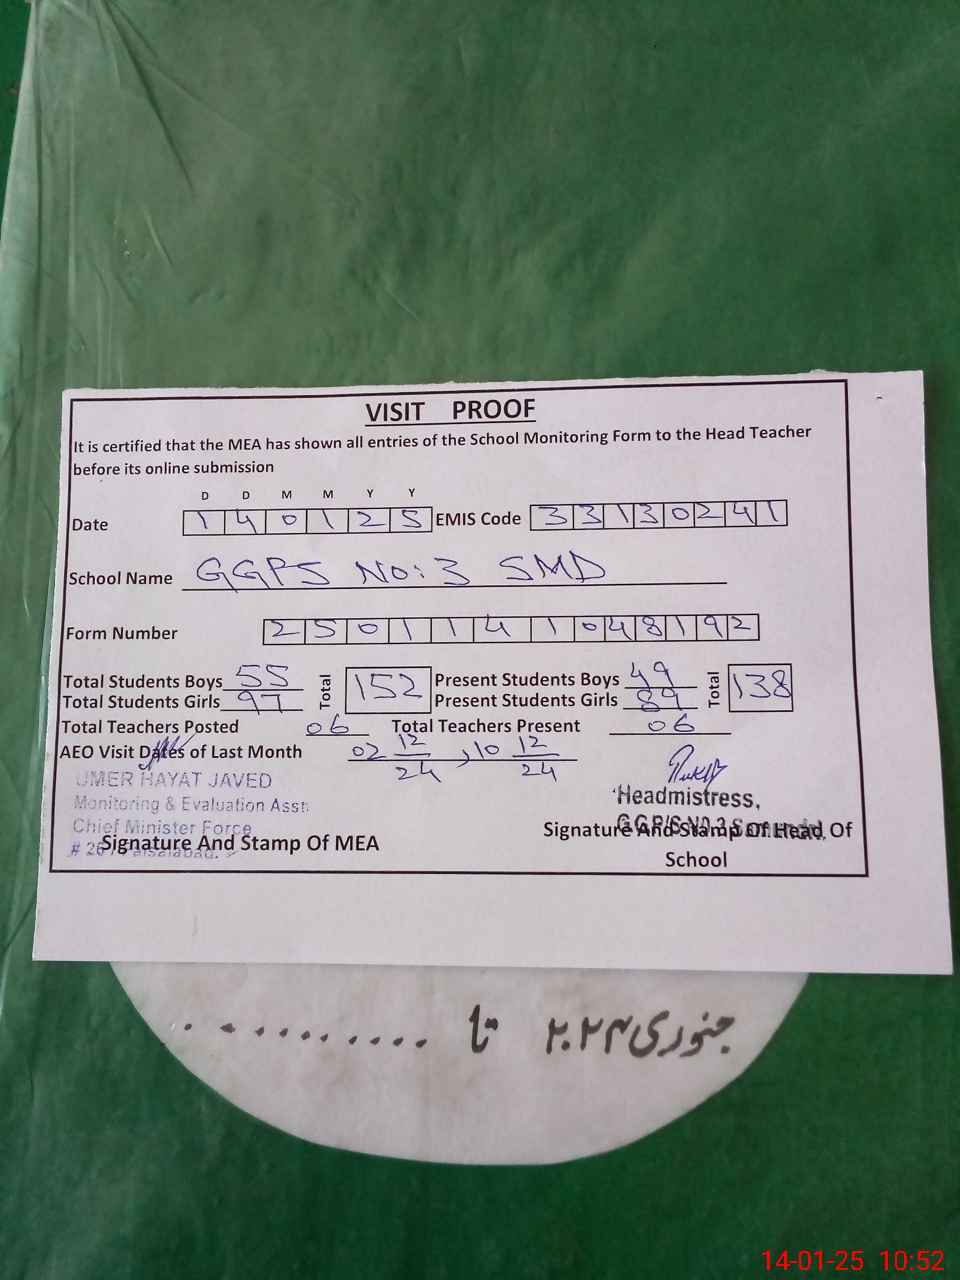 VISIT PROOF
It is certified that the MEA has shown all entries of the School Monitoring Form to the Head Teacher
before its online submission
D D M M Y Y
Date 1 4 0 1 2 5 EMIS Code 3 3 1 3 0 2 4 1
School Name GGPS No: 3 SMD
Form Number 2 5 0 1 1 4 1 0 4 8 1 9 2
Total Students Boys 55 Total 152 Present Students Boys 49 Total 138
Total Students Girls 97 Present Students Girls 89
Total Teachers Posted 06 Total Teachers Present 06
AEO Visit Dates of Last Month 02 12/24 , 10 12/24
UMER HAYAT JAVED
Monitoring & Evaluation Asst:
Chief Minister Force
# 26 Faisalabad.
Signature And Stamp Of MEA
Headmistress,
G.G.P/S No.3
Signature And Stamp Of Head Of
School
جنوری ۲۰۲۴ تا ..........
14-01-25 10:52